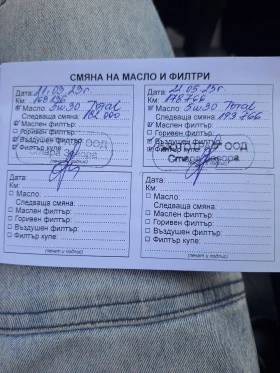 СМЯНА НА МАСЛО И ФИЛТРИ
Дата:
Км:
Масло: 5w30 Total
Следваща смяна:
Маслен филтър:
Горивен филтър:
Въздушен филтър:
Филтър купе:
(печат и подпис)
Дата: 21.05.25г.
Км: 178766
Масло: 5w30 Total
Следваща смяна: 193766
Маслен филтър:
Горивен филтър:
Въздушен филтър:
Филтър купе:
(печат и подпис)
Дата:
Км:
Масло:
Следваща смяна:
Маслен филтър:
Горивен филтър:
Въздушен филтър:
Филтър купе:
(печат и подпис)
Дата:
Км:
Масло:
Следваща смяна:
Маслен филтър:
Горивен филтър:
Въздушен филтър:
Филтър купе:
(печат и подпис)